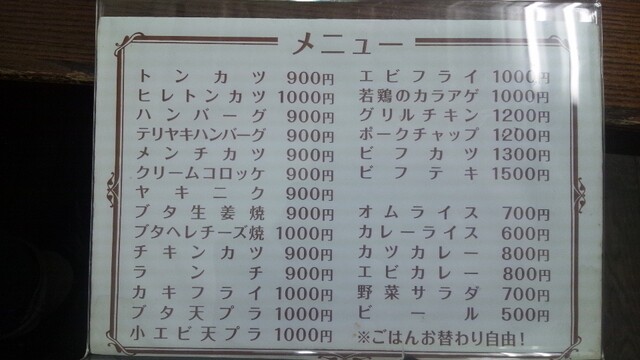 メニュー
トンカツ 900円
ヒレトンカツ 1000円
ハンバーグ 900円
テリヤキハンバーグ 900円
メンチカツ 900円
クリームコロッケ 900円
ヤキニク 900円
ブタ生姜焼 900円
ブタヘレチーズ焼 1000円
チキンカツ 900円
ランチ 900円
カキフライ 1000円
ブタ天プラ 1000円
小エビ天プラ 1000円
エビフライ 1000円
若鶏のカラアゲ 1000円
グリルチキン 1200円
ポークチャップ 1200円
ビフカツ 1300円
ビフテキ 1500円
オムライス 700円
カレーライス 600円
カツカレー 800円
エビカレー 800円
野菜サラダ 700円
ビール 500円
※ごはんお替わり自由!